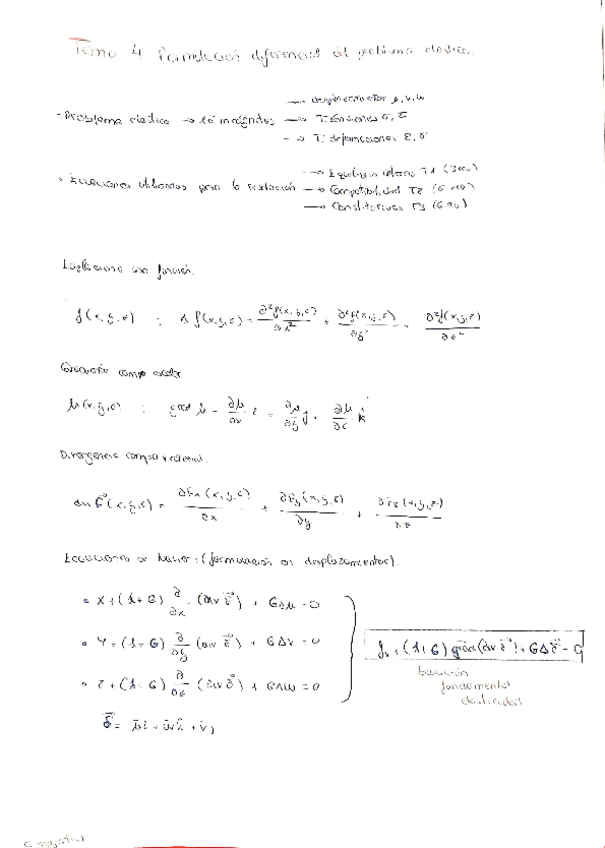 Tema 4 Formulación diferencial del problema elástico.
- Problema elástico → 15 incógnitas → desplazamientos u, v, w
→ T. tensiones σ, τ
→ T. deformaciones ε, γ
· Ecuaciones utilizadas para la resolución → Equilibrio interno T1 (3 ecu)
→ Compatibilidad T2 (6 ecu)
→ Constitutivas T3 (6 ecu)
Laplaciano una función.
f(x,y,z) : Δ f(x,y,z) = ∂²f(x,y,z)/∂x² + ∂²f(x,y,z)/∂y² + ∂²f(x,y,z)/∂z²
Gradiente campo escalar
μ(x,y,z) : grad μ = ∂μ/∂x i + ∂μ/∂y j + ∂μ/∂z k
Divergencia campo vectorial.
div F(x,y,z) = ∂Fx(x,y,z)/∂x + ∂Fy(x,y,z)/∂y + ∂Fz(x,y,z)/∂z
Ecuaciones de Navier: (formulación en desplazamientos).
• X + (λ+G) ∂/∂x (div δ) + GΔu = 0
• Y + (λ+G) ∂/∂y (div δ) + GΔv = 0
• Z + (λ+G) ∂/∂z (div δ) + GΔw = 0
fv + (λ+G) grad(div δ) + GΔδ = 0
Ecuación
fundamental
elasticidad